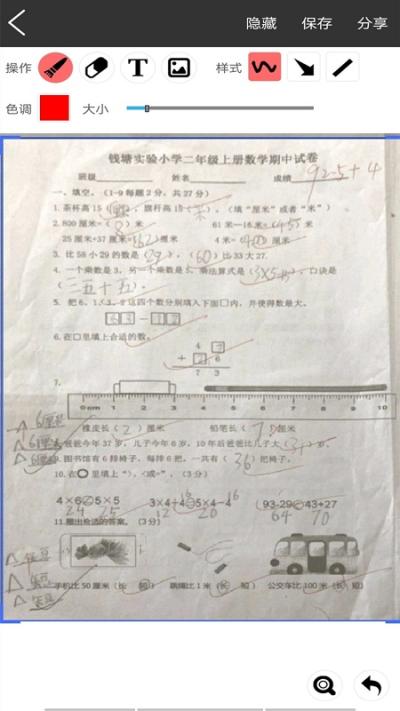 隐藏 保存 分享
操作 T 样式
色调 大小
钱塘实验小学二年级上册数学期中试卷
班级 姓名 成绩 92.5+4
一、填空。(1-9每题2分,共27分)
1. 茶杯高15(厘米),旗杆高15(米)。(填“厘米”或者“米”)
2. 800厘米=(8)米 61米-16米=(45)米
25厘米+37厘米=(62)厘米 4米=(400)厘米
3. 比58小29的数是(29),(60)比33大27.
4. 一个乘数是3,另一个乘数是5,乘法算式是(3×5=),口诀是
(三五十五)。
5. 把6、1、3、2这四个数分别填入下面□内,并使得数最大。
63-12
6. 在□里填上合适的数。
4
+ 2 6
7 3
7.
0cm 1 2 3 4 5 6 7 8 9 10
橡皮长(2)厘米 铅笔长( )厘米
爸爸今年37岁,儿子今年6岁,10年后爸爸比儿子大(31)岁。
图书馆有6排椅子,每排6把,一共有(36)把椅子。
10. 在○里填上“>、<或=”。(3分)
4×6 5×5 3×4+4 5×4-4 93-29 43+27
24 25 12 16 20 16 64 70
11.圈出合适的答案。(3分)
手机比50厘米(长 短) 跳绳比1米(长 短) 公交车比100米(长 短)